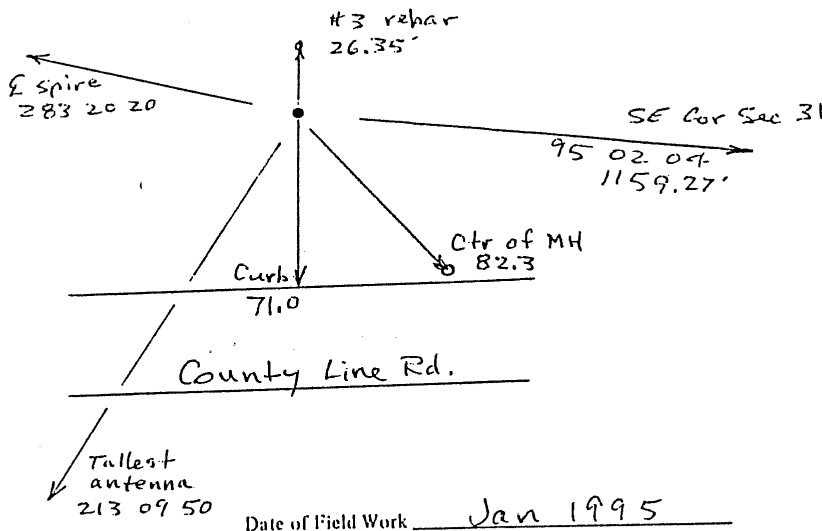 #3 rebar
26.35'
℄ spire
283 20 20
SE Cor Sec 31
95 02 04
1159.27'
Ctr of MH
82.3
Curb
71.0
County Line Rd.
Tallest
antenna
213 09 50
Date of Field Work Jan 1995